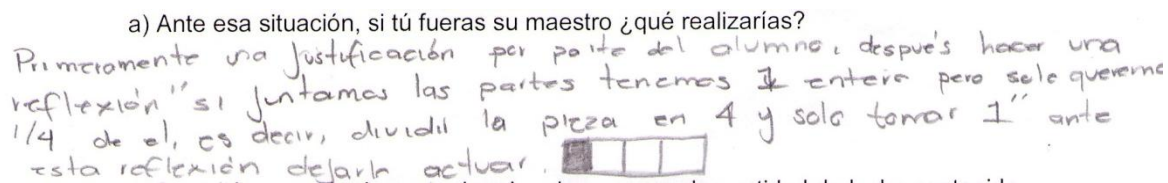 a) Ante esa situación, si tú fueras su maestro ¿qué realizarías?
Primeramente una Justificación por parte del alumno, después hacer una
reflexión "si juntamos las partes tenemos 1 entero pero solo queremos
1/4 de el, es decir, dividir la pieza en 4 y solo tomar 1" ante
esta reflexión dejarlo actuar.